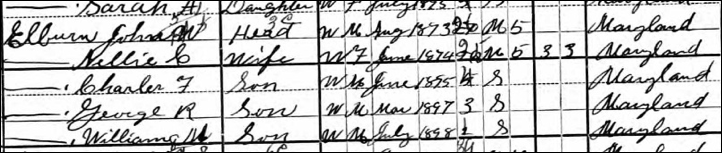 Sarah H Daughter W F July 1873 S Maryland
Elburn John W Head W M Aug 1873 M 5 Maryland
Nellie C Wife W F June 1874 M 5 3 3 Maryland
Charles F Son W M June 1895 4 S Maryland
George R Son W M Mar 1897 3 S Maryland
William M Son W M July 1898 1 S Maryland